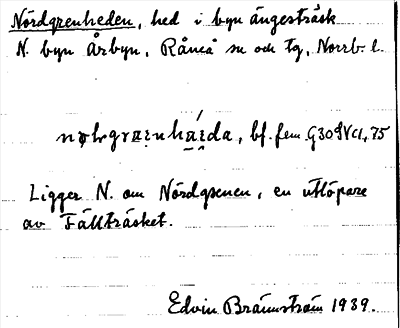 Nördgrenheden, hed i byn ängesträsk
N. byn Årbyn, Råneå sn och tg, Norrb. l.
bf. fem.
Ligger N. om Nördgrenen, en utlöpare
av Fällträsket.
Edvin Brännström 1939.